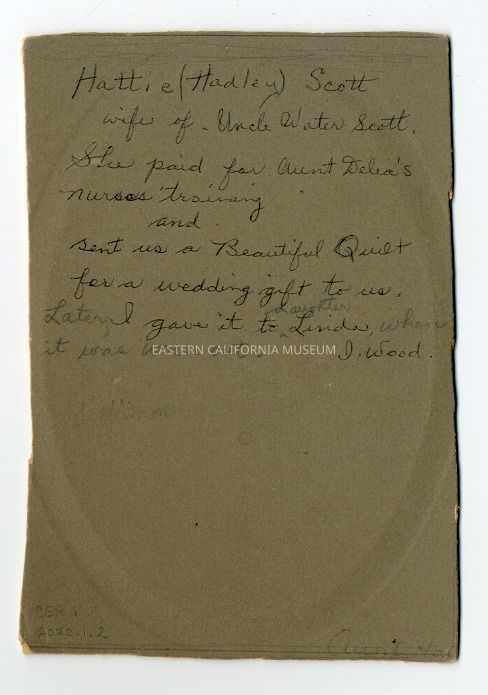 Hattie (Hadley) Scott
wife of Uncle Water Scott.
She paid for Aunt Delia's
nurses' training
and
sent us a Beautiful Quilt
for a wedding gift to us.
Later I gave it to daughter Linda, when
it was
I. Wood.
EASTERN CALIFORNIA MUSEUM
2020.1.2
Aunt